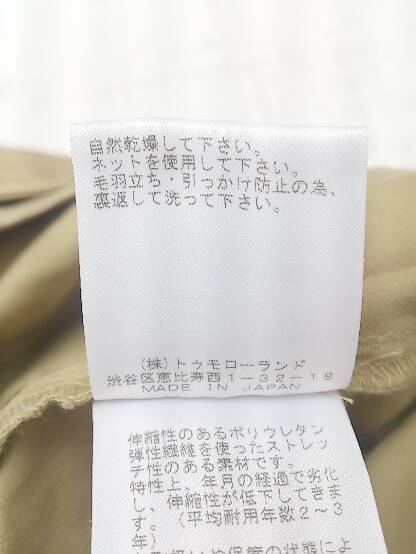 自然乾燥して下さい。
ネットを使用して下さい。
毛羽立ち・引っかけ防止の為、
裏返して洗って下さい。
(株)トゥモローランド
渋谷区恵比寿西1-32-18
MADE IN JAPAN
伸縮性のあるポリウレタン
弾性繊維を使ったストレッ
チ性のある素材です。
特性上、年月の経過で劣化
し、伸縮性が低下してきま
す。(平均耐用年数2~3
年)
や保管の状態によ